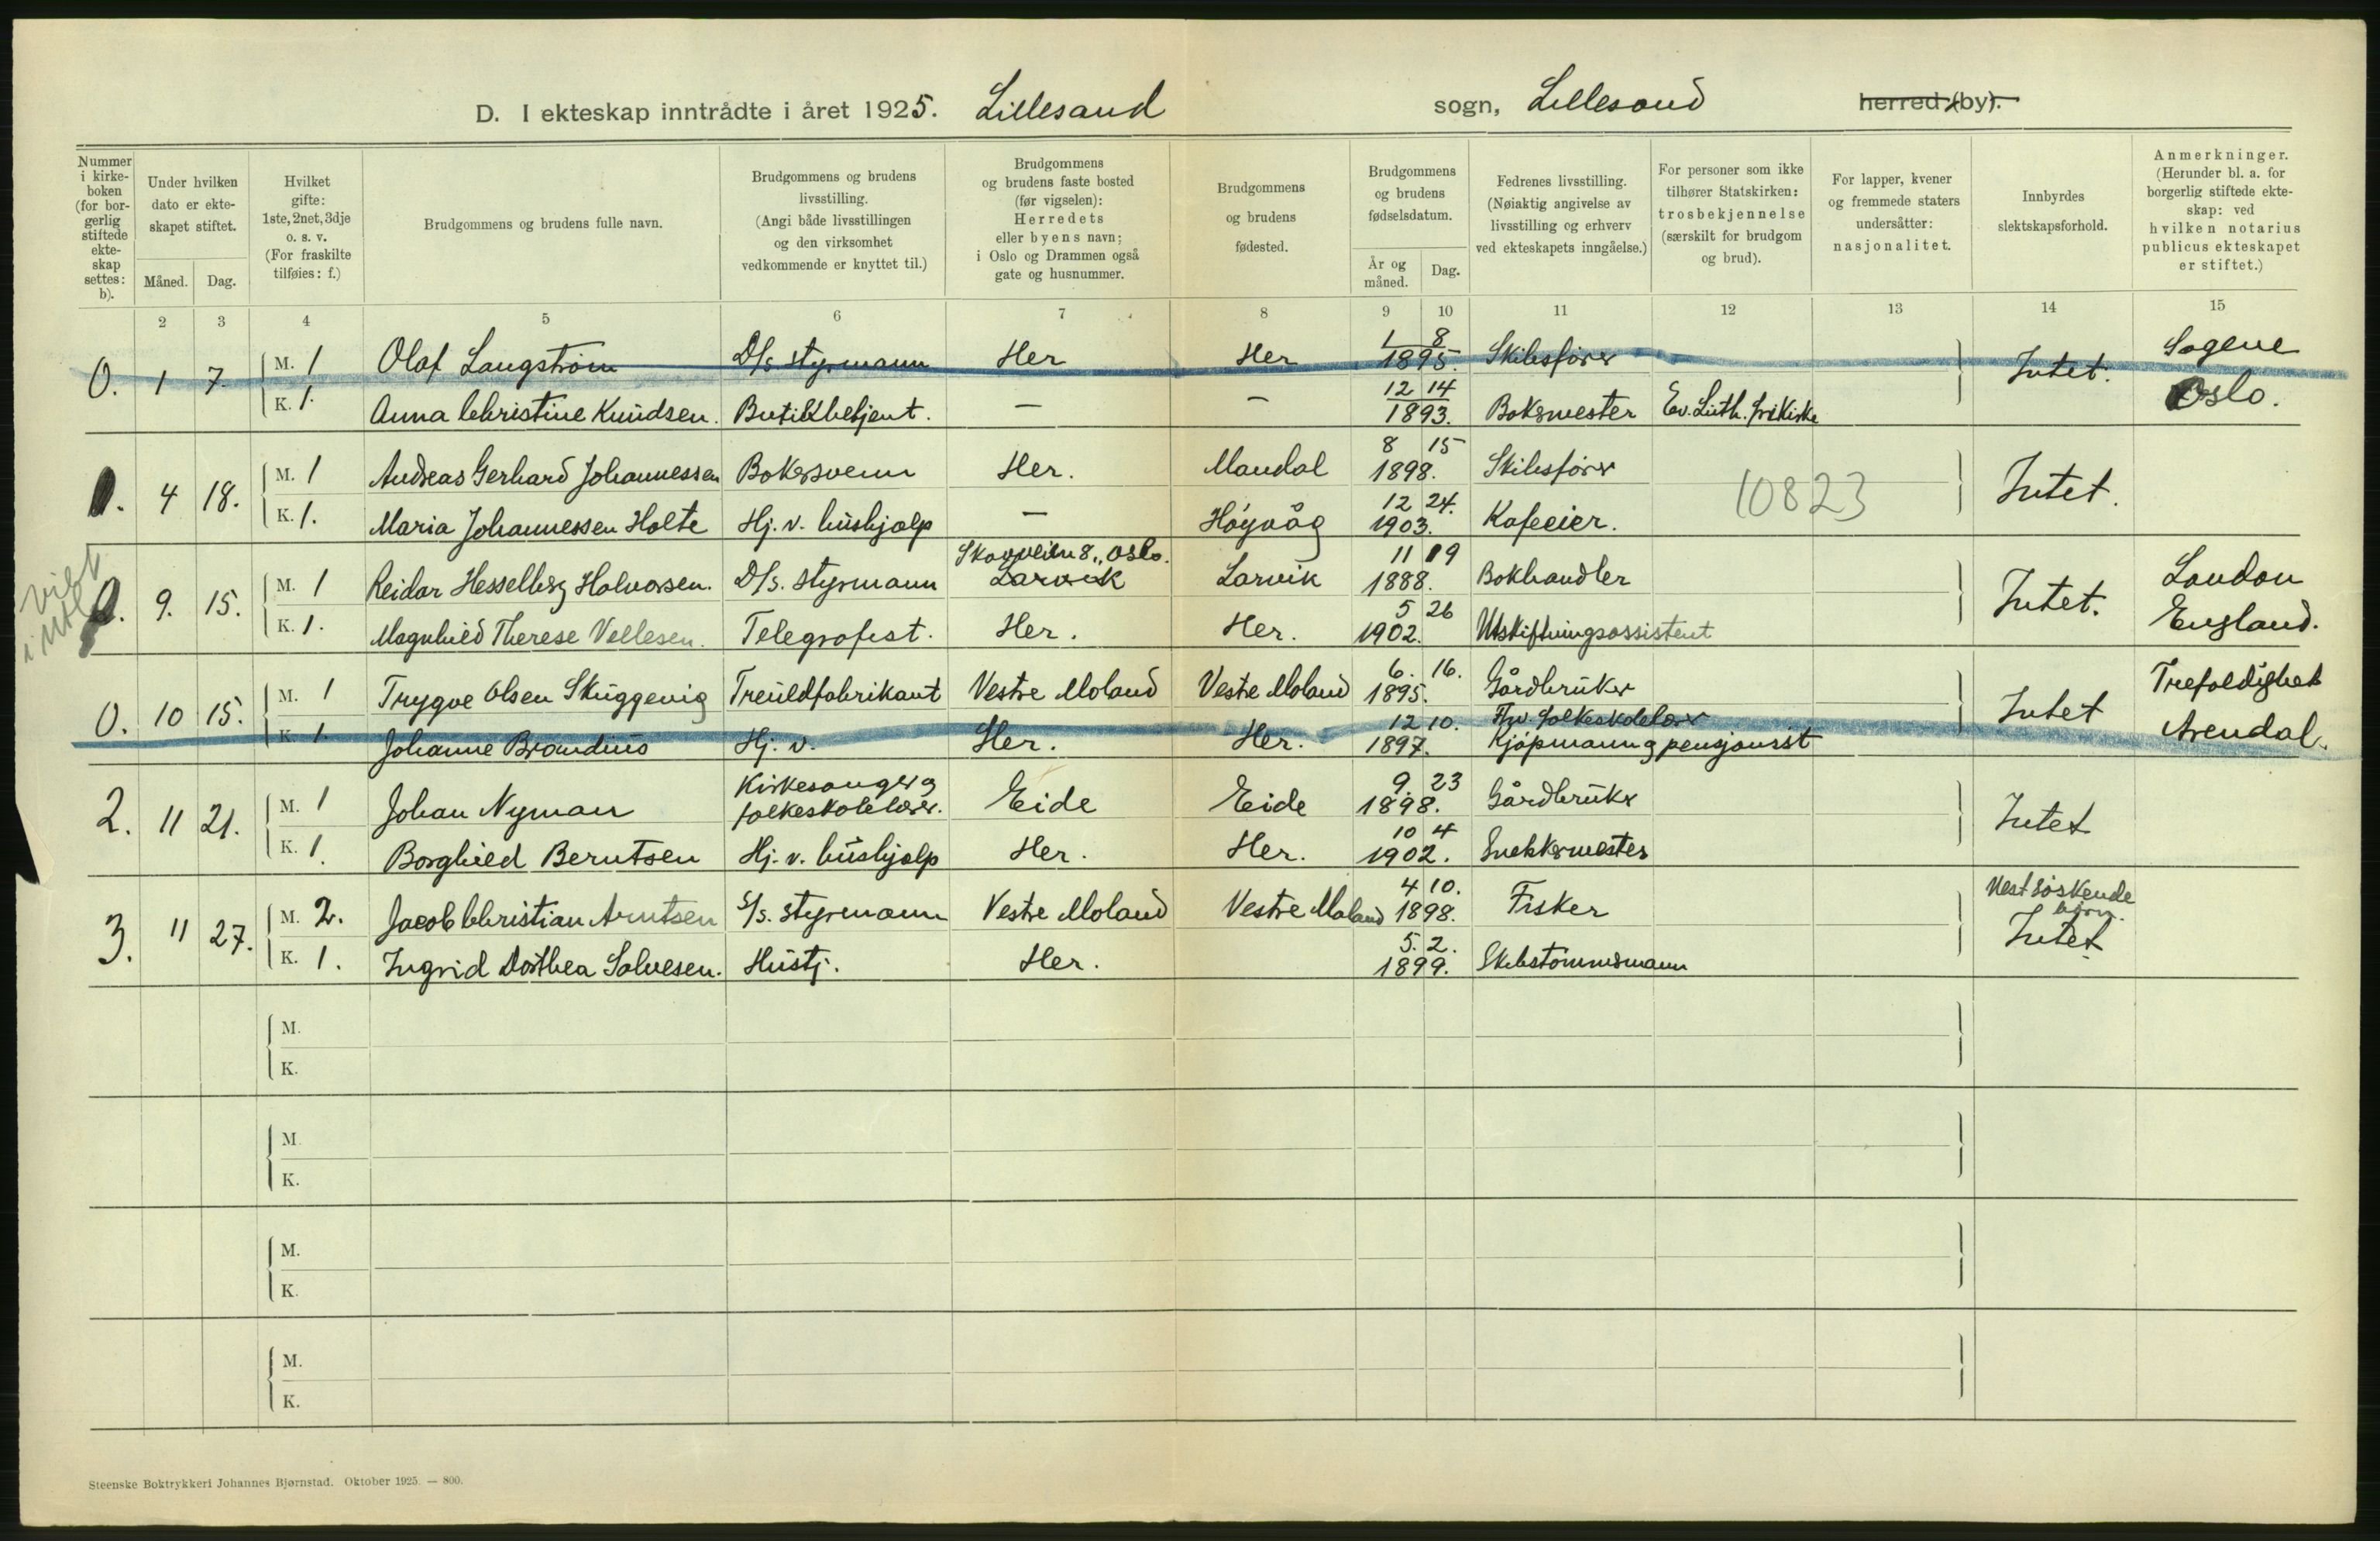 D. I ekteskap inntrådte i året 1925. Lillesand sogn, Lillesand herred (by).
Nummer i kirke-boken (for bor-gerlig stiftede ekte-skap settes: b).
Under hvilken dato er ekte-skapet stiftet.
Måned. Dag.
Hvilket gifte: 1ste, 2net, 3dje o. s. v. (For fraskilte tilføies: f.)
Brudgommens og brudens fulle navn.
Brudgommens og brudens livsstilling. (Angi både livsstillingen og den virksomhet vedkommende er knyttet til.)
Brudgommens og brudens faste bosted (før vigselen): Herredets eller byens navn; i Oslo og Drammen også gate og husnummer.
Brudgommens og brudens fødested.
Brudgommens og brudens fødselsdatum.
År og måned. Dag.
Fedrenes livsstilling. (Nøiaktig angivelse av livsstilling og erhverv ved ekteskapets inngåelse.)
For personer som ikke tilhører Statskirken: trosbekjennelse (særskilt for brudgom og brud).
For lapper, kvener og fremmede staters undersåtter: nasjonalitet.
Innbyrdes slektskapsforhold.
Anmerkninger. (Herunder bl. a. for borgerlig stiftede ekte-skap: ved hvilken notarius publicus ekteskapet er stiftet.)
2 3 4 5 6 7 8 9 10 11 12 13 14 15
0. 1 7. M. 1 Olaf Langstrøm D/s styrmann Her Her 1 8 1895. Skibsfører Intet. Sagene
K. 1. Anna Christine Knudsen. Butikkbetjent. — — 12 14 1893. Bakermester Ev. Luth. frikirke Oslo.
0. 4 18. M. 1 Andreas Gerhard Johannessen Bakersvenn Her. Mandal 8 15 1898. Skibsfører 10823 Intet.
K. 1. Maria Johannessen Holte Hj. v. hushjælp — Høyvåg 12 24. 1903. Kafeeier.
0. 9. 15. M. 1 Reidar Hesselberg Halvorsen. D/s. styrmann Skovveien 8,, Oslo. Larvik Larvik 11 19 1888. Bokhandler Intet. London
K. 1. Magnhild Therese Vellesen. Telegrafist. Her. Her. 5 26 1902. Utskiftningsassistent England.
0. 10 15. M. 1 Trygve Olsen Skuggevig Treuldfabrikant Vestre Moland Vestre Moland 6. 16. 1895. Gårdbruker Intet Trefoldighet
K. 1. Johanne Brandius Hj. v. Her. Her. 12 10. 1897. Fhv. folkeskolelærer Kjøpmann og pensjonist Arendal.
2. 11 21. M. 1 Johan Nyman Kirkesanger og folkeskolelærer. Eide Eide 9. 23 1898. Gårdbruker Intet
K. 1. Borghild Berntsen Hj. v. hushjælp Her. Her. 10 4 1902. Snekkermester
3. 11 27. M. 2. Jacob Christian Arntsen S/s. styrmann Vestre Moland Vestre Moland 4 10. 1898. Fisker Næstsøskende børn. Intet
K. 1. Ingrid Dorthea Salvesen. Hustj. Her. 5. 2. 1899. Skibstømmermann
M.
K.
M.
K.
M.
K.
M.
K.
Steenske Boktrykkeri Johannes Bjørnstad. Oktober 1925. — 800.